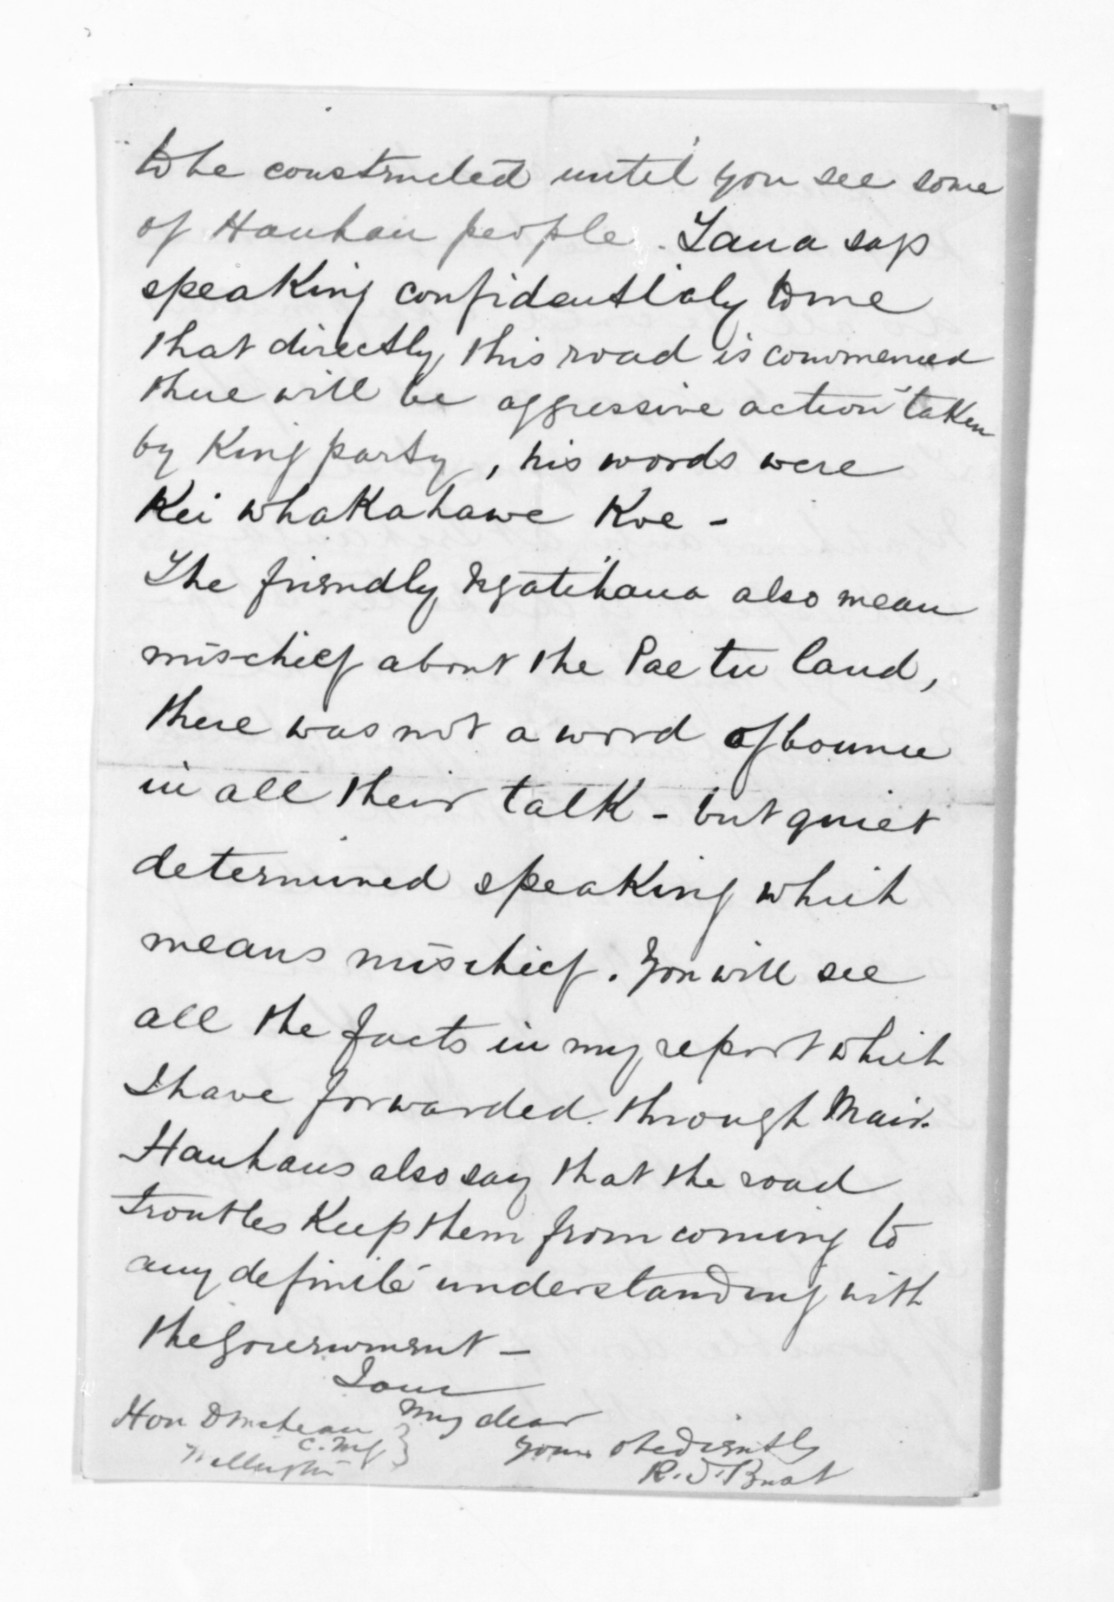 to be constructed until you see some
of Hauhau people. Tana says
speaking confidentlialy to me
that directly this road is commenced
there will be aggressive action taken
by King party, his words were
Kei whakahawe Koe -
The friendly Ngatihaua also mean
mischief about the Pae tu land,
there was not a word of bounce
in all their talk - but quiet
determined speaking which
means mischief. You will see
all the facts in my report which
I have forwarded through Mair.
Hauhaus also say that the road
troubles Keep them from coming to
any definite understanding with
the Government -
I am
My dear
Yours obediently
R. J. Buat
Hon D McLean
C.M.G
Wellington